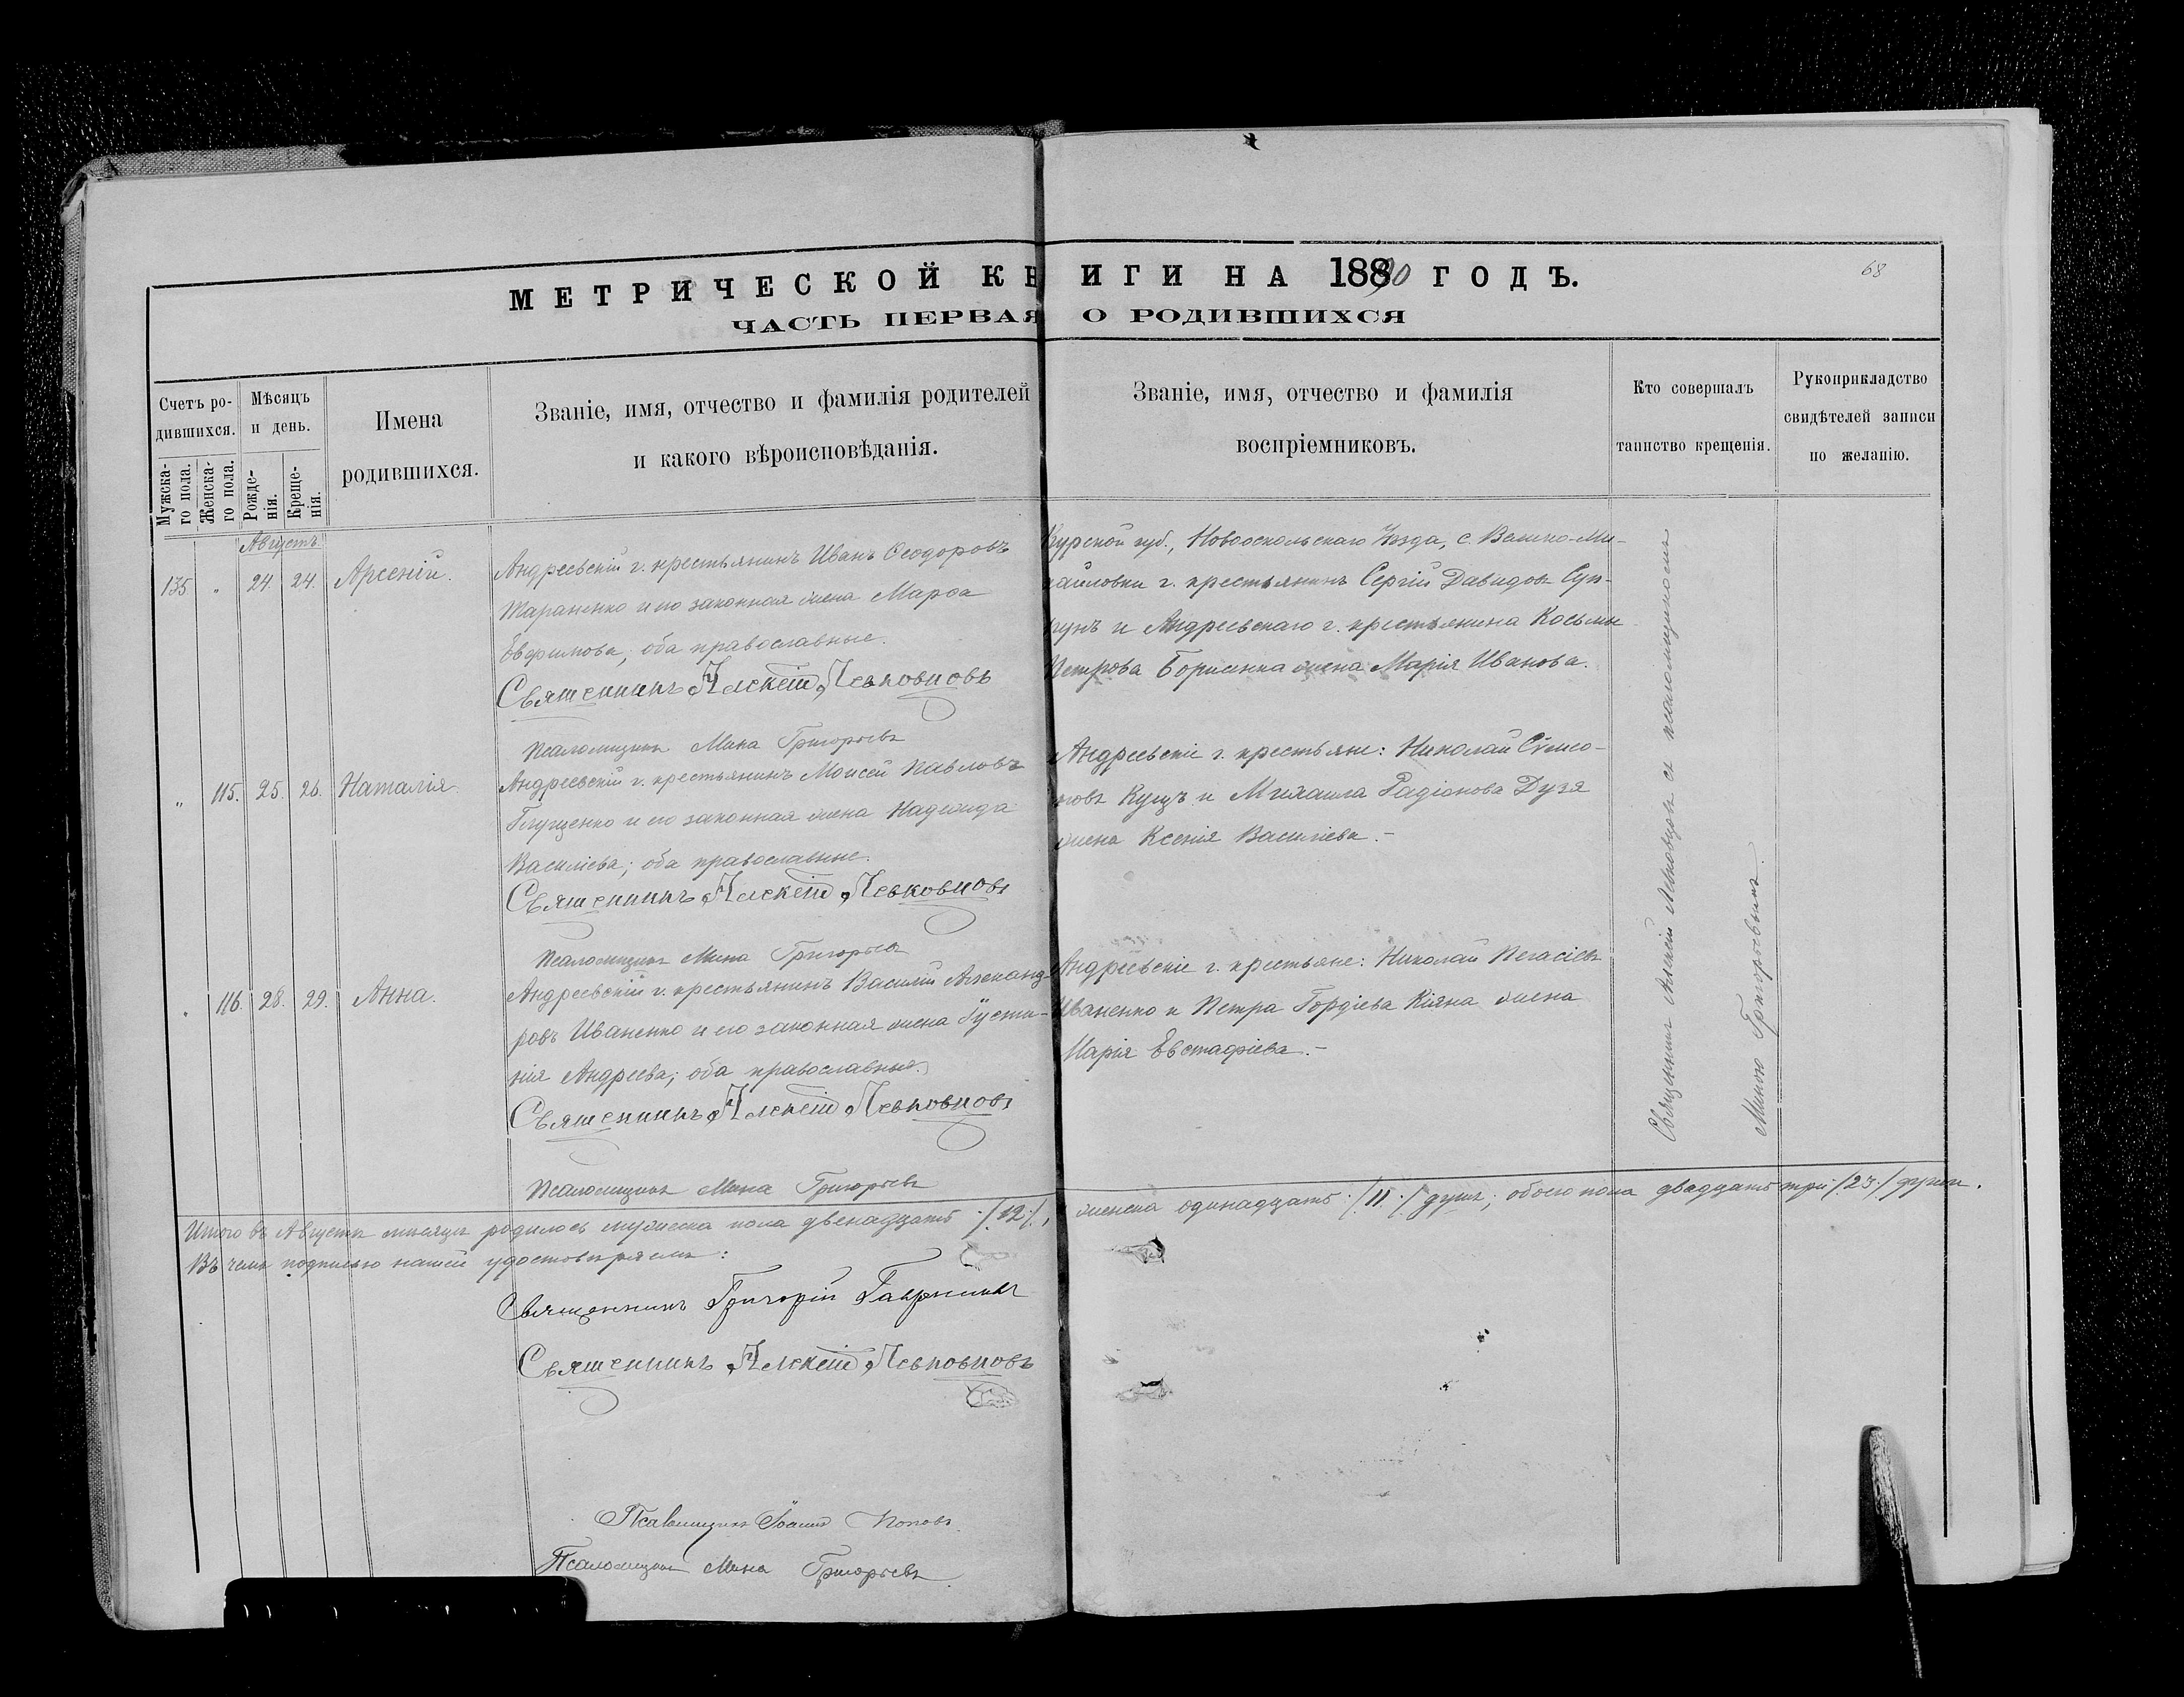 68
МЕТРИЧЕСКОЙ КНИГИ НА 1890 ГОДЪ.
ЧАСТЬ ПЕРВАЯ О РОДИВШИХСЯ
Счетъ ро-
дившихся.
Мужска-
го пола.
Женска-
го пола.
Мѣсяцъ
и день.
Рожде-
нія.
Креще-
нія.
Имена
родившихся.
Званіе, имя, отчество и фамилія родителей
и какого вѣроисповѣданія.
Званіе, имя, отчество и фамилія
воспріемниковъ.
Кто совершалъ
таинство крещенія.
Рукоприкладство
свидѣтелей записи
по желанію.
Августъ.
135 " 24. 24. Арсеній.
Андреевскій г. крестьянинъ Иванъ Ѳеодоровъ
Тараненко и его законная жена Марѳа
Евфимова; оба православные.
Священникъ Алексій Левковцовъ
Псаломщикъ Мина Григорьевъ
Курской губ., Новооскольскаго Уѣзда, с. Велико-Ми-
хайловки г. крестьянинъ Сергій Давидовъ
и Андреевскаго г. крестьянина Косьмы
Петрова Борисенка жена Марія Иванова.
" 115. 25. 26. Наталія.
Андреевскій г. крестьянинъ Моисей Павловъ
Глущенко и его законная жена Надежда
Василіева; оба православные.
Священникъ Алексій Левковцовъ
Псаломщикъ Мина Григорьевъ
Андреевскіе г. крестьяне: Николай Сѵмео-
новъ Кущъ и Михаила Радіонова Дузя
жена Ксенія Василіева.-
" 116. 28. 29. Анна.
Андреевскій г. крестьянинъ Василій Александ-
ровъ Иваненко и его законная жена Іусти-
нія Андреева; оба православные.
Священникъ Алексій Левковцовъ
Псаломщикъ Мина Григорьевъ
Андреевскіе г. крестьяне: Николай Пегасіевъ
Иваненко и Петра Гордіева Кіяна жена
Марія Евстафіева.-
Священникъ Алексій Левковцовъ съ псаломщикомъ
Миною Григорьевымъ.
Итого въ Августѣ мѣсяцѣ родилось мужеска пола двенадцать /.12./, женска одинадцать /.11./ душъ; обоего пола двадцать три /.23./ души.
Въ чемъ подписью нашей удостовѣряемъ:
Священникъ Григорій
Священникъ Алексій Левковцовъ
Псаломщикъ Іоаннъ Поповъ.
Псаломщикъ Мина Григорьевъ